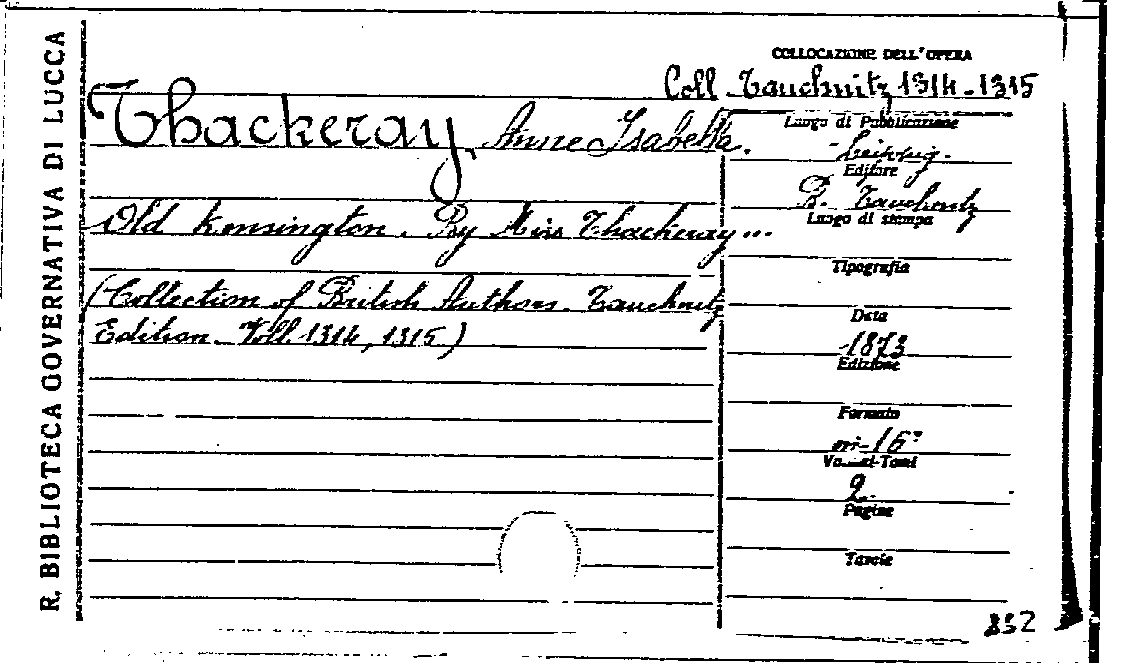 R. BIBLIOTECA GOVERNATIVA DI LUCCA
COLLOCAZIONE DELL'OPERA
Coll. Tauchnitz 1314-1315
Thackeray, Anne Isabella.
Old Kensington. By Miss Thackeray...
(Collection of British Authors. Tauchnitz
Edition. Voll. 1314, 1315)
Luogo di Pubblicazione
Leipzig.
Editore
B. Tauchnitz
Luogo di stampa
Tipografia
Data
1873
Edizione
Formato
in-16°
Volumi-Tomi
2
Pagine
Tavole
832